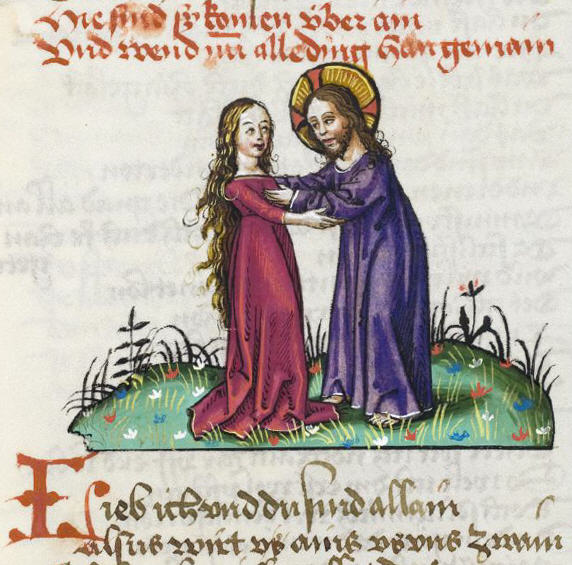 Hie sind sy komen über ain
Vnd wend nu alle ding han gemain
Lieb ich vnd du sind allain
Alsus wirt vs ains vs vns zwain